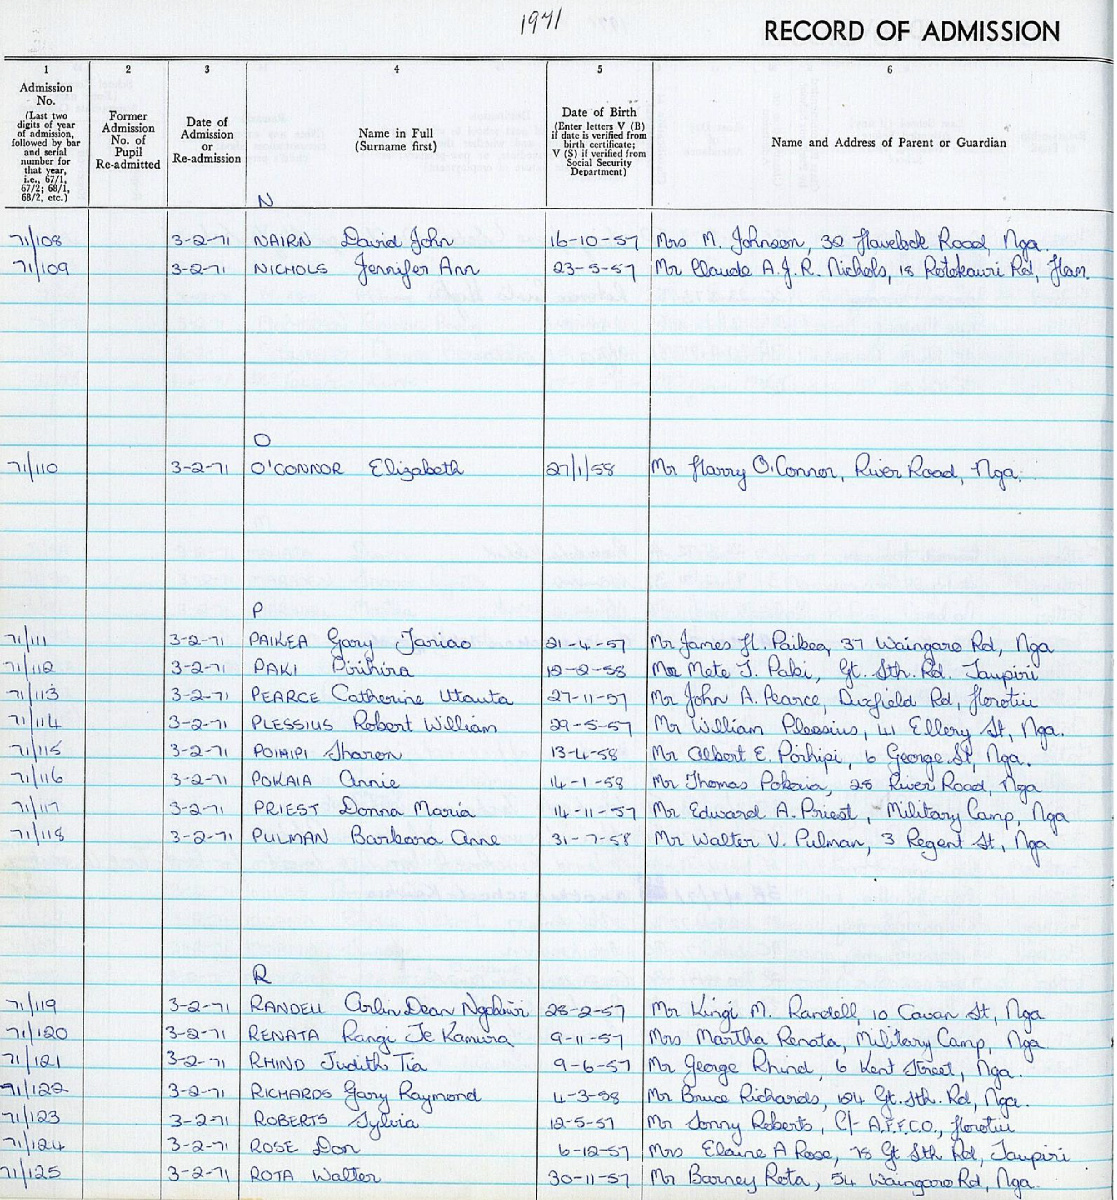 1971
RECORD OF ADMISSION
1 2 3 4 5 6
Admission No. (Last two digits of year of admission, followed by bar and serial number for that year, i.e., 67/1, 67/2; 68/1, 68/2, etc.)
Former Admission No. of Pupil Re-admitted
Date of Admission or Re-admission
Name in Full (Surname first)
Date of Birth (Enter letters V (B) if date is verified from birth certificate; V (S) if verified from Social Security Department)
Name and Address of Parent or Guardian
N
71/108 3-2-71 NAIRN David John 16-10-57 Mrs M. Johnson, 32 Havelock Road, Nga.
71/109 3-2-71 NICHOLS Jennifer Ann 23-5-57 Mr Claude A.J.R. Nichols, 18 Rotokauri Rd, Ham.
O
71/110 3-2-71 O'CONNOR Elizabeth 27/1/58 Mr Harry O'Connor, River Road, Nga.
P
71/111 3-2-71 PAIKEA Gary Tariao 21-4-57 Mr James H. Paikea, 37 Waingaro Rd, Nga
71/112 3-2-71 PAKI Pirihira 12-2-58 Mete T. Paki, Gt. Sth. Rd. Taupiri
71/113 3-2-71 PEARCE Catherine Utauta 27-11-57 Mr John A. Pearce, Rd, Horotiu
71/114 3-2-71 PLESSIUS Robert William 29-5-57 Mr William Plessius, 41 Ellery St, Nga.
71/115 3-2-71 POIHIPI Sharon 13-4-58 Mr Albert E. Poihipi, 6 George St, Nga.
71/116 3-2-71 POKAIA Annie 14-1-58 Mr Thomas Pokaia, 28 River Road, Nga
71/117 3-2-71 PRIEST Donna Maria 14-11-57 Mr Edward A. Priest, Military Camp, Nga
71/118 3-2-71 PULMAN Barbara Anne 31-7-58 Mr Walter V. Pulman, 3 Regent St, Nga
R
71/119 3-2-71 RANDELL Arlin Dean 28-2-57 Mr Kingi M. Randell, 10 Cavan St, Nga
71/120 3-2-71 RENATA Rangi Te Kamura 9-11-57 Mrs Martha Renata, Military Camp, Nga
71/121 3-2-71 RHIND Judith Tia 9-6-57 Mr George Rhind, 6 Kent Street, Nga.
71/122 3-2-71 RICHARDS Gary Raymond 4-3-58 Mr Bruce Richards, 124 Gt. Sth. Rd, Nga.
71/123 3-2-71 ROBERTS Sylvia 12-5-57 Mr Sonny Roberts, C/- A.F.F.CO., Horotiu
71/124 3-2-71 ROSE Don 6-12-57 Mrs Elaine A Rose, 78 Gt Sth Rd, Taupiri
71/125 3-2-71 ROTA Walter 30-11-57 Mr Barney Rota, 54 Waingaro Rd, Nga.